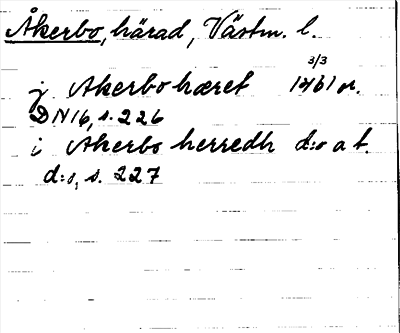 Åkerbo, härad, Västm. l.
3/3
j Akerbo hæret 1461 or.
DN 16, s. 226
i Akerbo herredh d:o a t.
d:o, s. 227